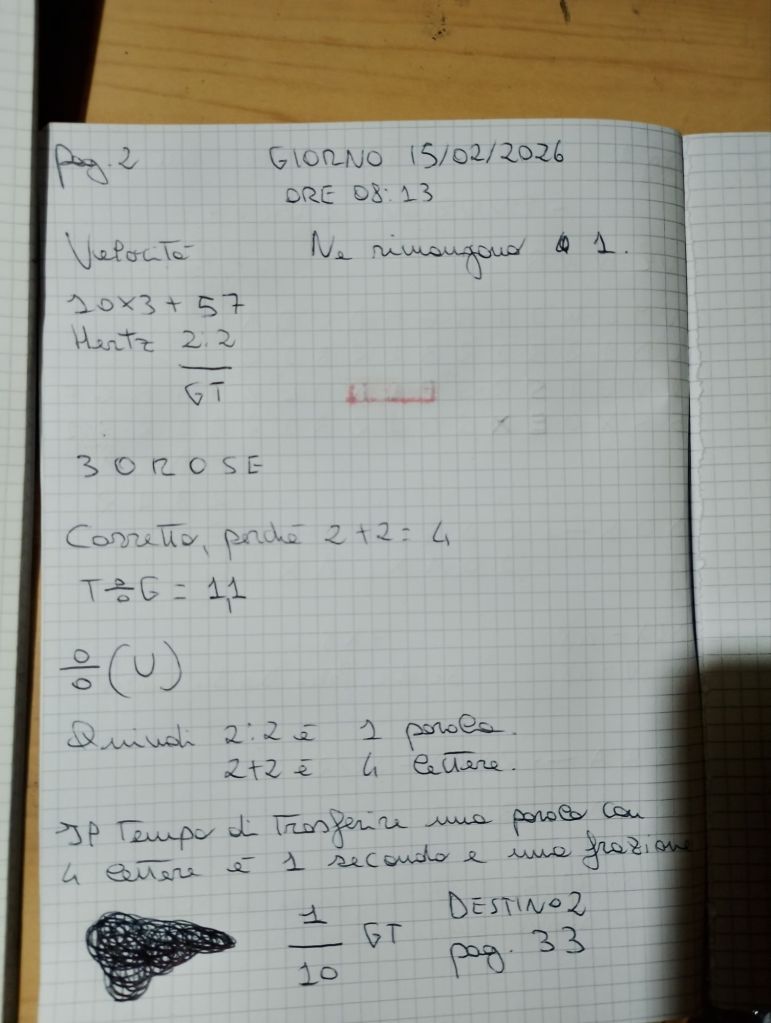 pag. 2 GIORNO 15/02/2026
ORE 08:13
Velocità Ne rimangono 1.
10x3+57
Hertz 2:2
GT
3 O R O S E
Corretto, perché 2+2=4
T÷G = 1,1
÷(U)
Quindi 2:2 è 1 parola.
2+2 è 4 lettere.
IP Tempo di Trasferire una parola con
4 lettere è 1 secondo e una frazione
1
GT
10
DESTINO2
pag. 33